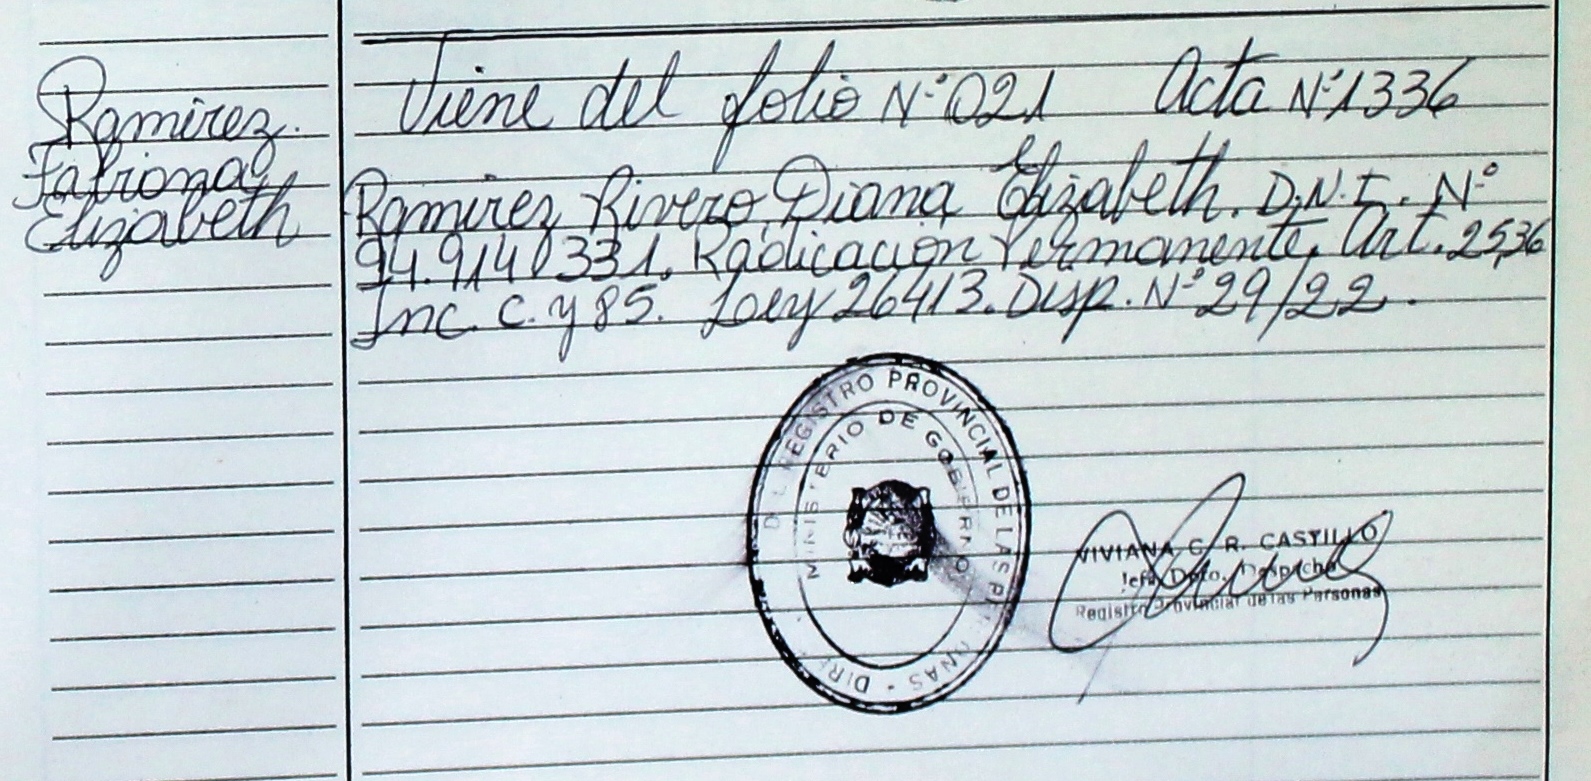 Ramirez.
Fabiana
Elizabeth
Viene del folio N° 021 Acta N° 1336
Ramirez Rivero, Diana Elizabeth. D.N.I. N°
94.914.331. Radicación Permanente. Art. 25,36
Inc. c. y 85. Ley 26413. Disp. N° 29/22.
REGISTRO PROVINCIAL DE LAS PERSONAS - DIRE
MINISTERIO DE GOBIERNO
VIVIANA C. R. CASTILLO
Jefa Dpto. Despacho
Registro Provincial de las Personas